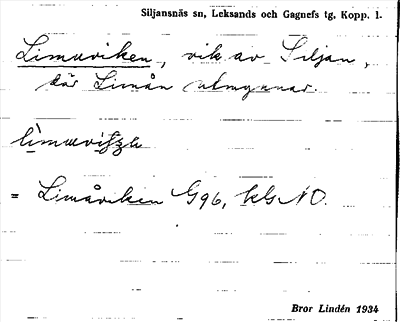 Siljansnäs sn, Leksands och Gagnefs tg, Kopp. l.
Limuviken, vik av Siljan,
där Limån utmynnar.
= Limåviken G96, kbl NO.
Bror Lindén 1934